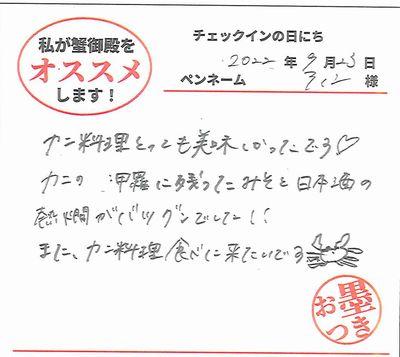 私が蟹御殿を
オススメ
します！
チェックインの日にち
2022年9月23日
ペンネーム 様
カニ料理とっても美味しかったです♡
カニの 甲羅に残ったみそと日本酒の
熱燗がバツグンでした!!
また、カニ料理食べに来たいです
お墨つき